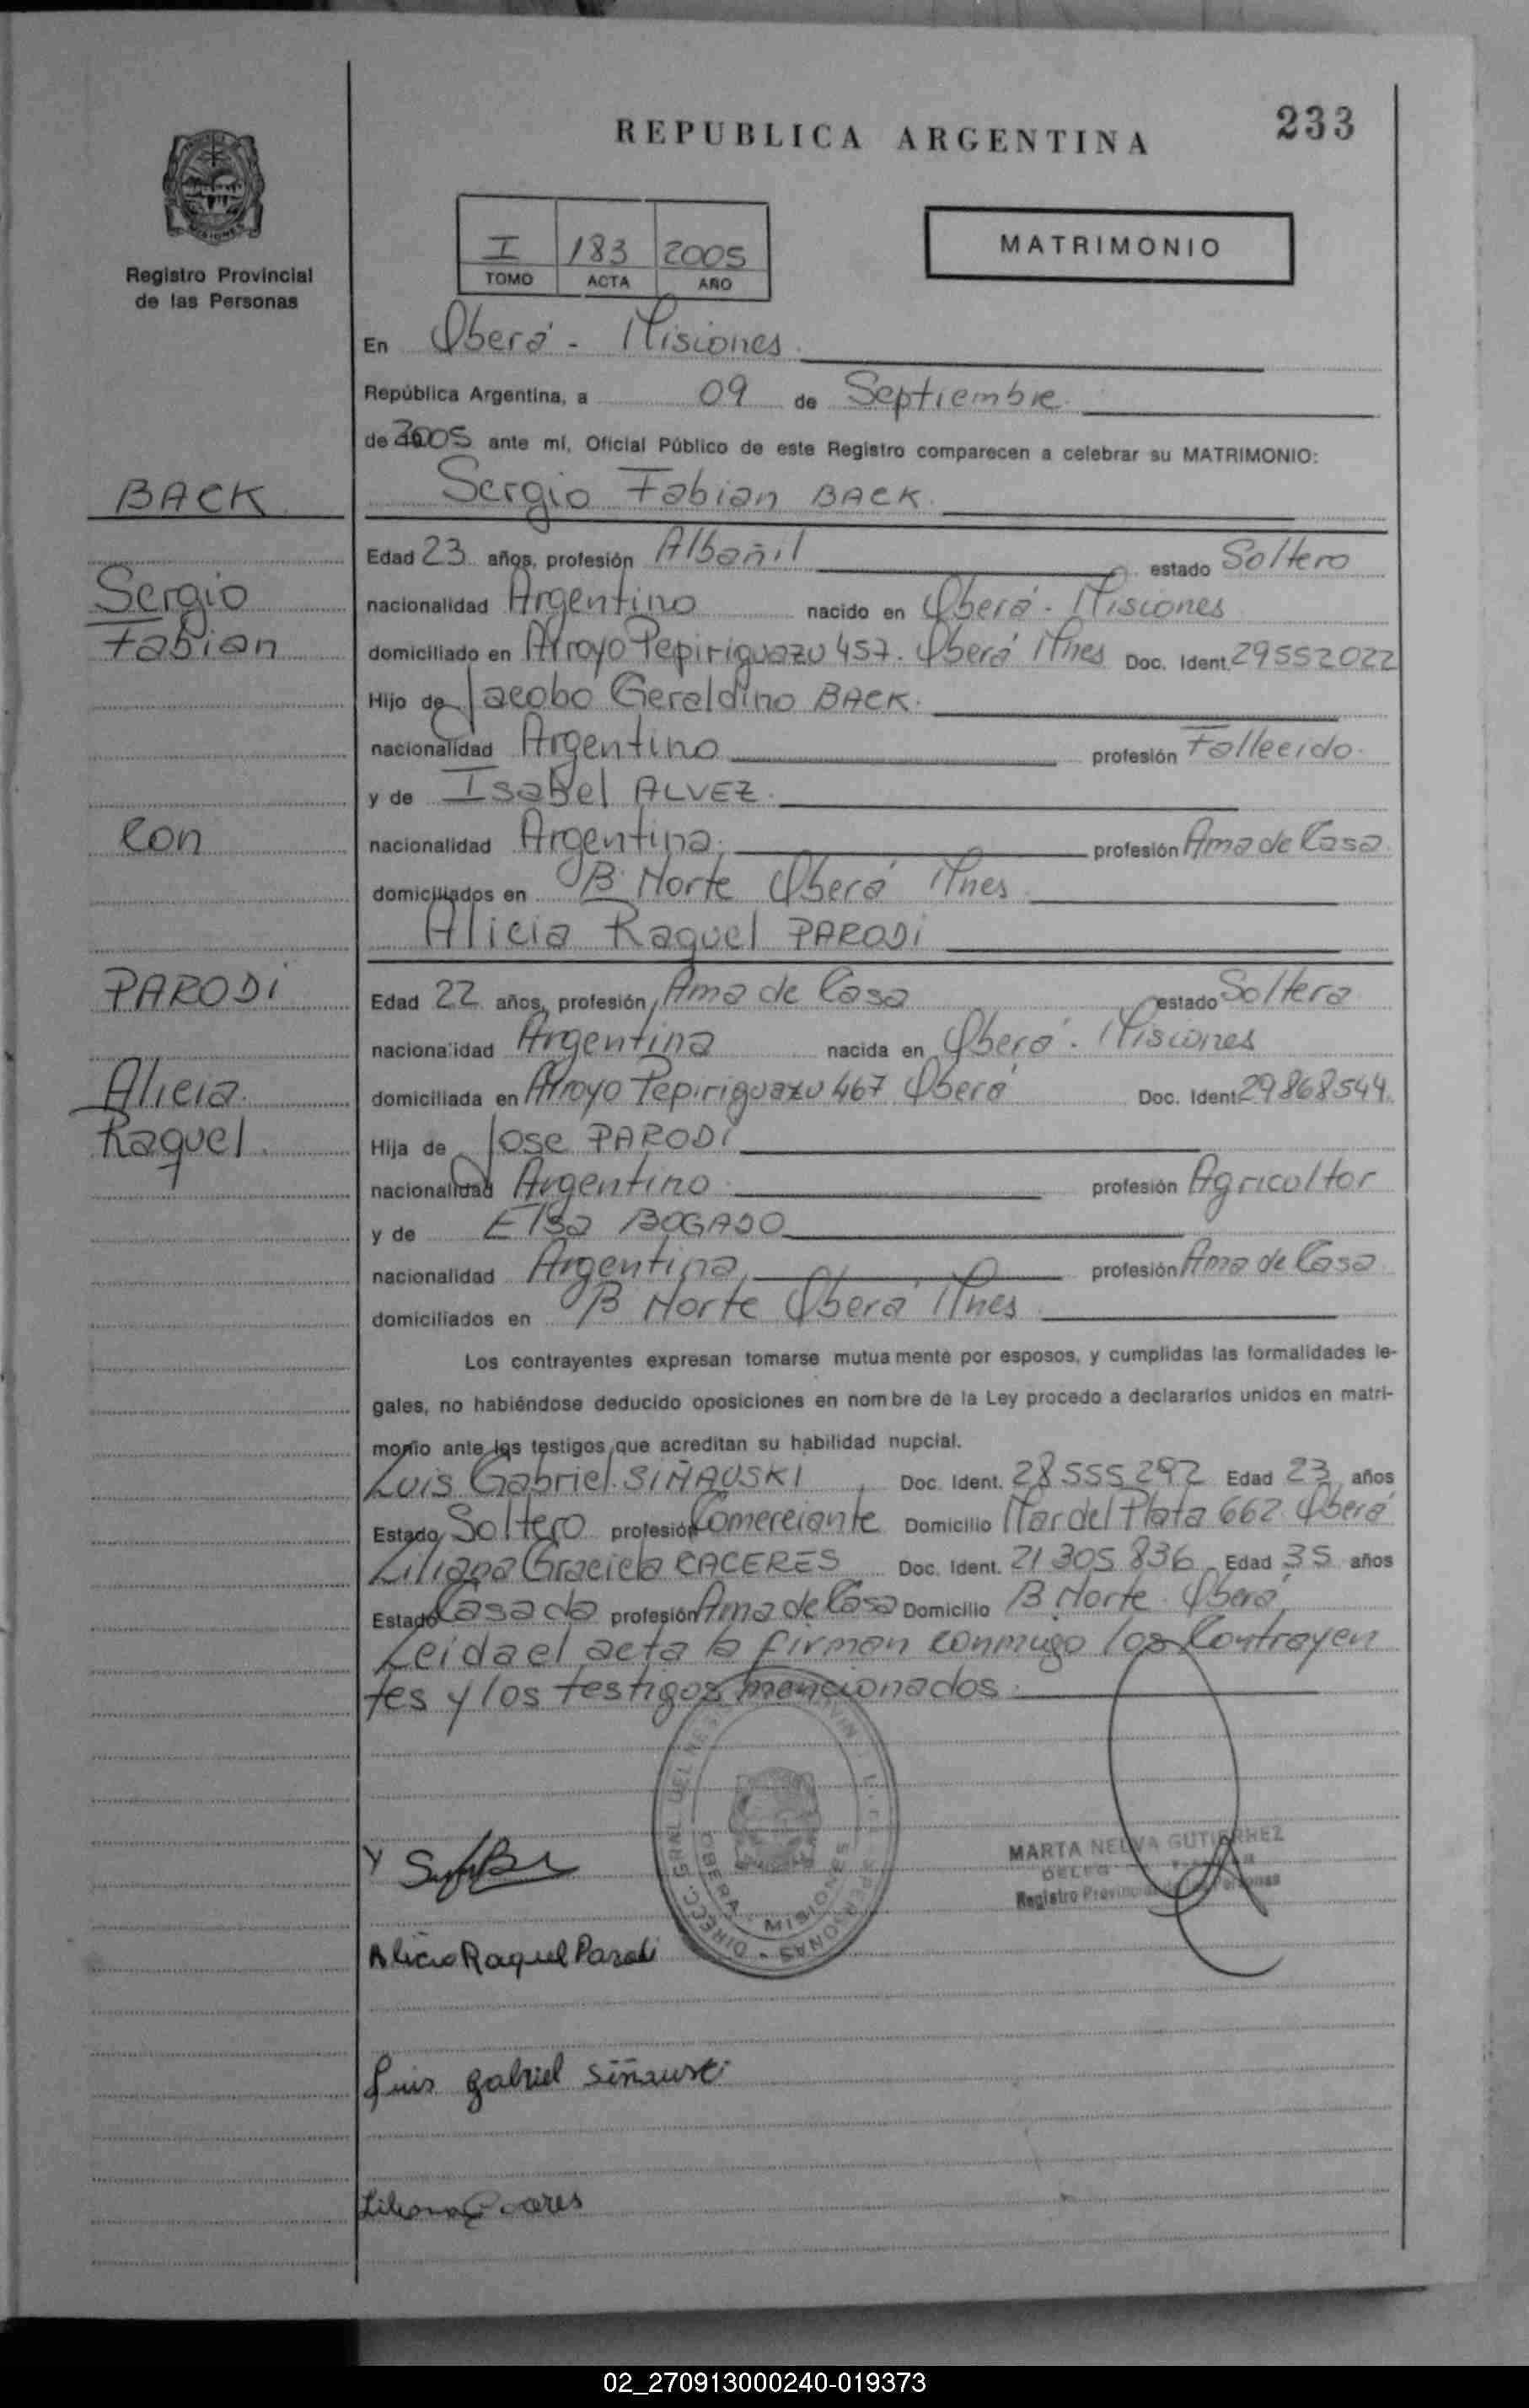 REPUBLICA ARGENTINA
233
MISIONES
Registro Provincial
de las Personas
I 183 2005
TOMO ACTA AÑO
MATRIMONIO
En Oberá - Misiones.
República Argentina, a 09 de Septiembre.
de 2005 ante mí, Oficial Público de este Registro comparecen a celebrar su MATRIMONIO:
BACK
Sergio Fabian BACK.
Edad 23 años, profesión Albañil estado Soltero
Sergio
nacionalidad Argentino nacido en Oberá - Misiones
Fabian
domiciliado en Arroyo Pepiriguazu 457. Oberá Mnes Doc. Ident. 29552022
Hijo de Jacobo Geraldino BACK.
nacionalidad Argentino profesión Fallecido.
y de Isabel ALVEZ.
Con
nacionalidad Argentina. profesión Ama de Casa.
domiciliados en B. Norte Oberá Mnes
Alicia Raquel PARODI
PARODI
Edad 22 años, profesión Ama de Casa estado Soltera
nacionalidad Argentina nacida en Oberá. Misiones
Alicia.
domiciliada en Arroyo Pepiriguazu 467 Oberá Doc. Ident. 29868544.
Raquel.
Hija de Jose PARODI
nacionalidad Argentino. profesión Agricultor
y de Elsa BOGADO
nacionalidad Argentina profesión Ama de Casa
domiciliados en B Norte Oberá Mnes
Los contrayentes expresan tomarse mutuamente por esposos, y cumplidas las formalidades le-
gales, no habiéndose deducido oposiciones en nombre de la Ley procedo a declararlos unidos en matri-
monio ante los testigos que acreditan su habilidad nupcial.
Luis Gabriel SIÑAUSKI Doc. Ident. 28555292 Edad 23 años
Estado Soltero profesión Comerciante Domicilio Mar del Plata 662 Oberá
Liliana Graciela CACERES Doc. Ident. 21305836 Edad 35 años
Estado Casada profesión Ama de Casa Domicilio B Norte. Oberá
Leida el acta la firman conmigo los Contrayen
tes y los testigos mencionados.
OBERA - MISIONES
MARTA NELVA GUTIERREZ
Registro Provincial de las Personas
Alicia Raquel Parodi
Luis gabriel siñauski
Liliana Caceres
02_270913000240-019373